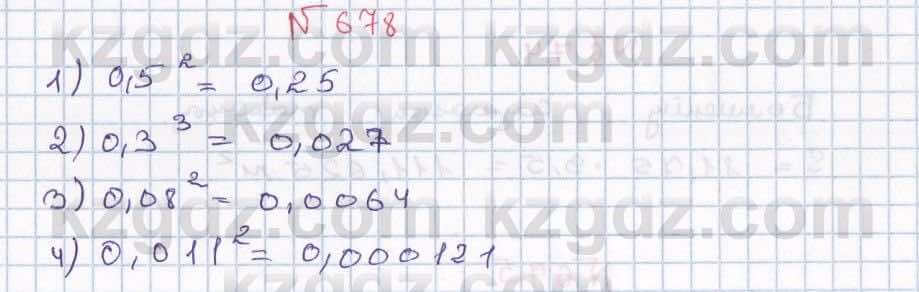 № 678
1) 0,5² = 0,25
2) 0,3³ = 0,027
3) 0,08² = 0,0064
4) 0,011² = 0,000121
kzgdz.com kzgdz.com
kzgdz.com kzgdz.com
kzgdz.com kzgdz.com